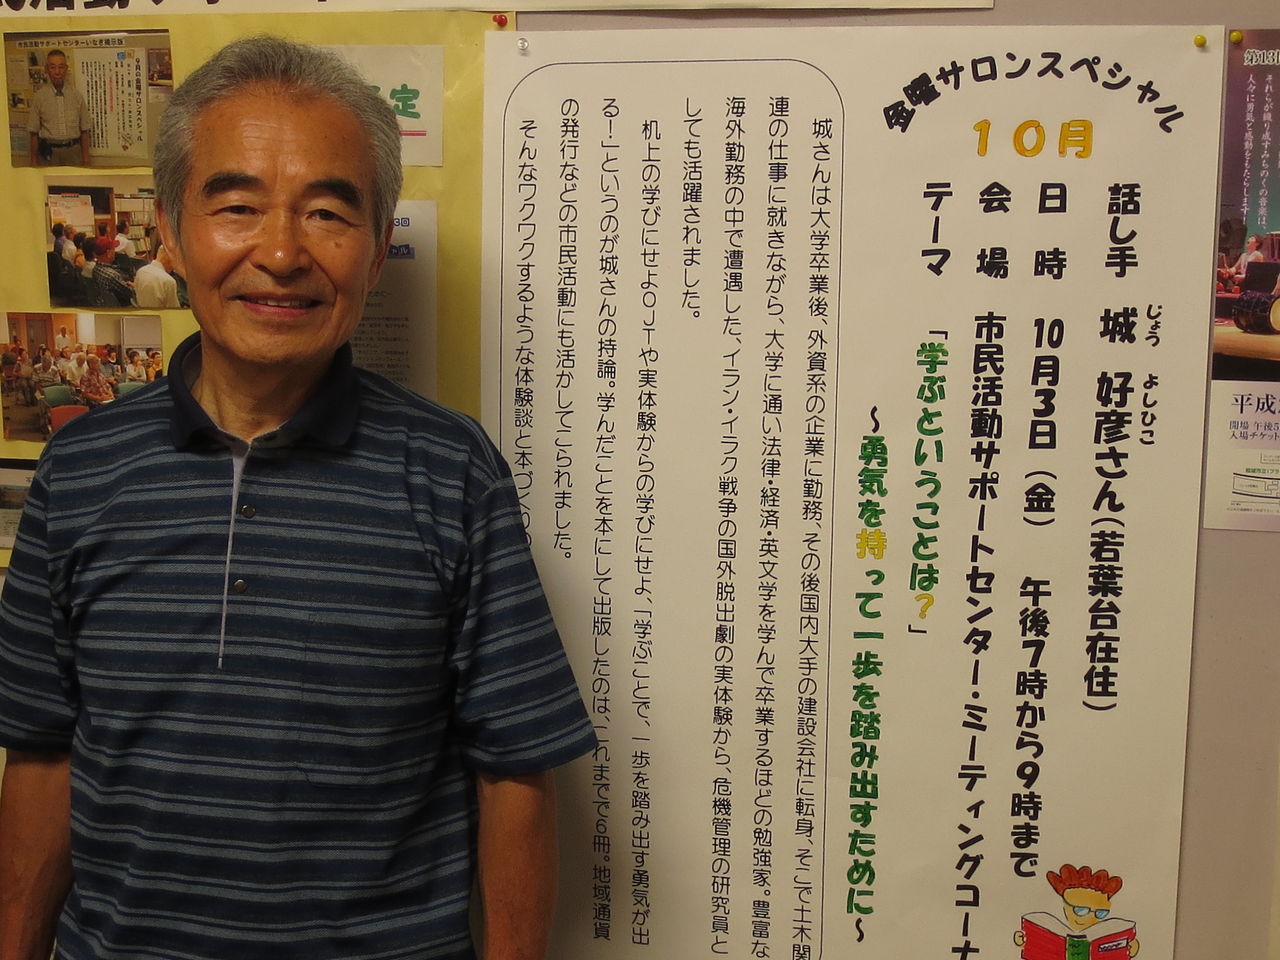 金曜サロンスペシャル
10月
話し手 城 好彦さん(若葉台在住)
じょう よしひこ
日 時 10月3日(金) 午後7時から9時まで
会 場 市民活動サポートセンター・ミーティングコーナ
テーマ 「学ぶということは?」
～勇気を持って一歩を踏み出すために～
城さんは大学卒業後、外資系の企業に勤務、その後国内大手の建設会社に転身、そこで土木関
連の仕事に就きながら、大学に通い法律・経済・英文学を学んで卒業するほどの勉強家。豊富な
海外勤務の中で遭遇した、イラン・イラク戦争の国外脱出劇の実体験から、危機管理の研究員と
しても活躍されました。
机上の学びにせよOJTや実体験からの学びにせよ、「学ぶことで、一歩を踏み出す勇気が出
る!」というのが城さんの持論。学んだことを本にして出版したのは、これまでで6冊。地域通貨
の発行などの市民活動にも活かしてこられました。
そんなワクワクするような体験談と本づくりの
市民活動サポートセンターいなぎ掲示版
9月の金曜サロンスペシャル
定
第13回
それらが織り成すみちのくの音楽は、
人々に勇気と感動をもたらします!
平成
開場 午後5
入場チケット